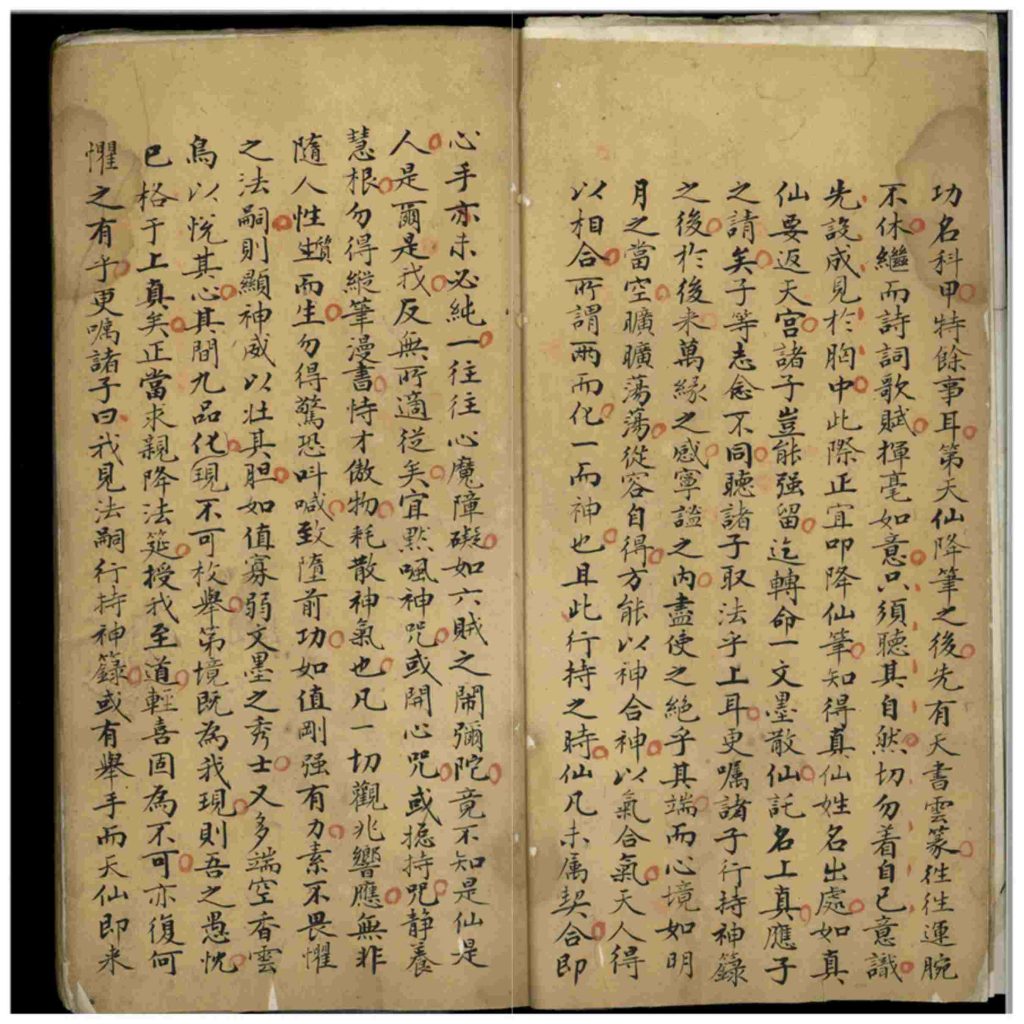 功名科甲特餘事耳第天仙降筆之後先有天書雲篆徃徃運腕
不休繼而詩詞歌賦揮毫如意只須聽其自然切勿着自已意識
先設成見於胸中此際正宜叩降仙筆知得真仙姓名出處如真
仙要返天宫諸子豈能强留迄轉命一文墨散仙託名上真應子
之請矣子等志念不同聽諸子取法乎上耳更嘱諸子行持神籙
之後於後来萬緣之感寧謐之内盡使之絕乎其端而心境如明
月之當空曠曠蕩蕩從容自得方能以神合神以氣合氣天人得
以相合所謂兩而化一而神也且此行持之時仙凡未属契合即
心手亦未必純一往往心魔障礙如六賊之鬧彌陀竟不知是仙是
人是爾是我反無所適從矣宜黙諷神咒或開心咒或揔持咒静養
慧根勿得縱筆漫書恃才傲物耗散神氣也凡一切觀兆響應無非
隨人性質生而生勿得驚恐呌喊致墮前功如值剛强有力素不畏懼
之法嗣則顯神威以壮其胆如值寡弱文墨之秀士又多端空香雲
鳥以悅其心其間九品化現不可枚舉第境既為我現則吾之愚忱
已格于上真矣正當求親降法筵授我至道輕喜固為不可亦復何
懼之有乎更嘱諸子曰我見法嗣行持神籙或有舉手而天仙即来